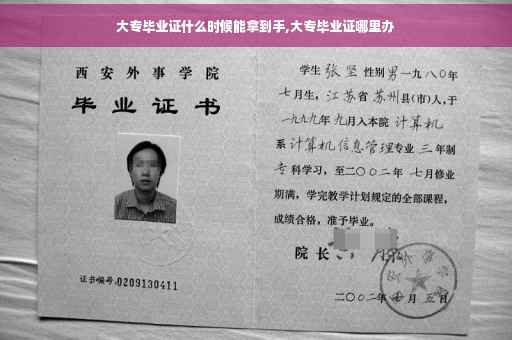 大专毕业证什么时候能拿到手,大专毕业证哪里办
西安外事学院
毕业证书
证书编号:0209130411
学生 张坚 性别 男 一九八〇年
七月生, 江苏省 苏州县(市)人,于
一九九九年 九月入本院 计算机
系 计算机信息管理专业 三 年制
专科学习, 至二〇〇二年 七月修业
期满, 学完教学计划规定的全部课程,
成绩合格, 准予毕业。
院长
二〇〇二年 月 五日